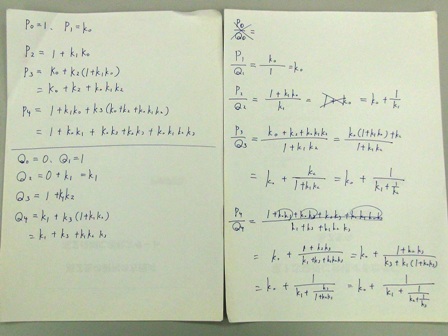 P₀ = 1, P₁ = k₀
P₂ = 1 + k₁k₀
P₃ = k₀ + k₂(1 + k₁k₀)
= k₀ + k₂ + k₀k₁k₂
P₄ = 1 + k₁k₀ + k₃(k₀ + k₂ + k₀k₁k₂)
= 1 + k₀k₁ + k₀k₃ + k₂k₃ + k₀k₁k₂k₃
Q₀ = 0, Q₁ = 1
Q₂ = 0 + k₁ = k₁
Q₃ = 1 + k₁k₂
Q₄ = k₁ + k₃(1 + k₁k₂)
= k₁ + k₃ + k₁k₂k₃
P₀/Q₀ =
P₁/Q₁ = k₀/1 = k₀
P₂/Q₂ = (1 + k₁k₀)/k₁ = = k₀ + 1/k₁
P₃/Q₃ = (k₀ + k₂ + k₀k₁k₂)/(1 + k₁k₂) = (k₀(1 + k₁k₂) + k₂)/(1 + k₁k₂)
= k₀ + k₂/(1 + k₁k₂) = k₀ + 1/(k₁ + 1/k₂)
P₄/Q₄ = (1 + k₀k₁ + k₀k₃ + k₂k₃ + k₀k₁k₂k₃)/(k₁ + k₃ + k₁k₂k₃)
= k₀ + (1 + k₂k₃)/(k₁ + k₃ + k₁k₂k₃) = k₀ + (1 + k₂k₃)/(k₃ + k₁(1 + k₂k₃))
= k₀ + 1/(k₁ + k₃/(1 + k₂k₃)) = k₀ + 1/(k₁ + 1/(k₂ + 1/k₃))